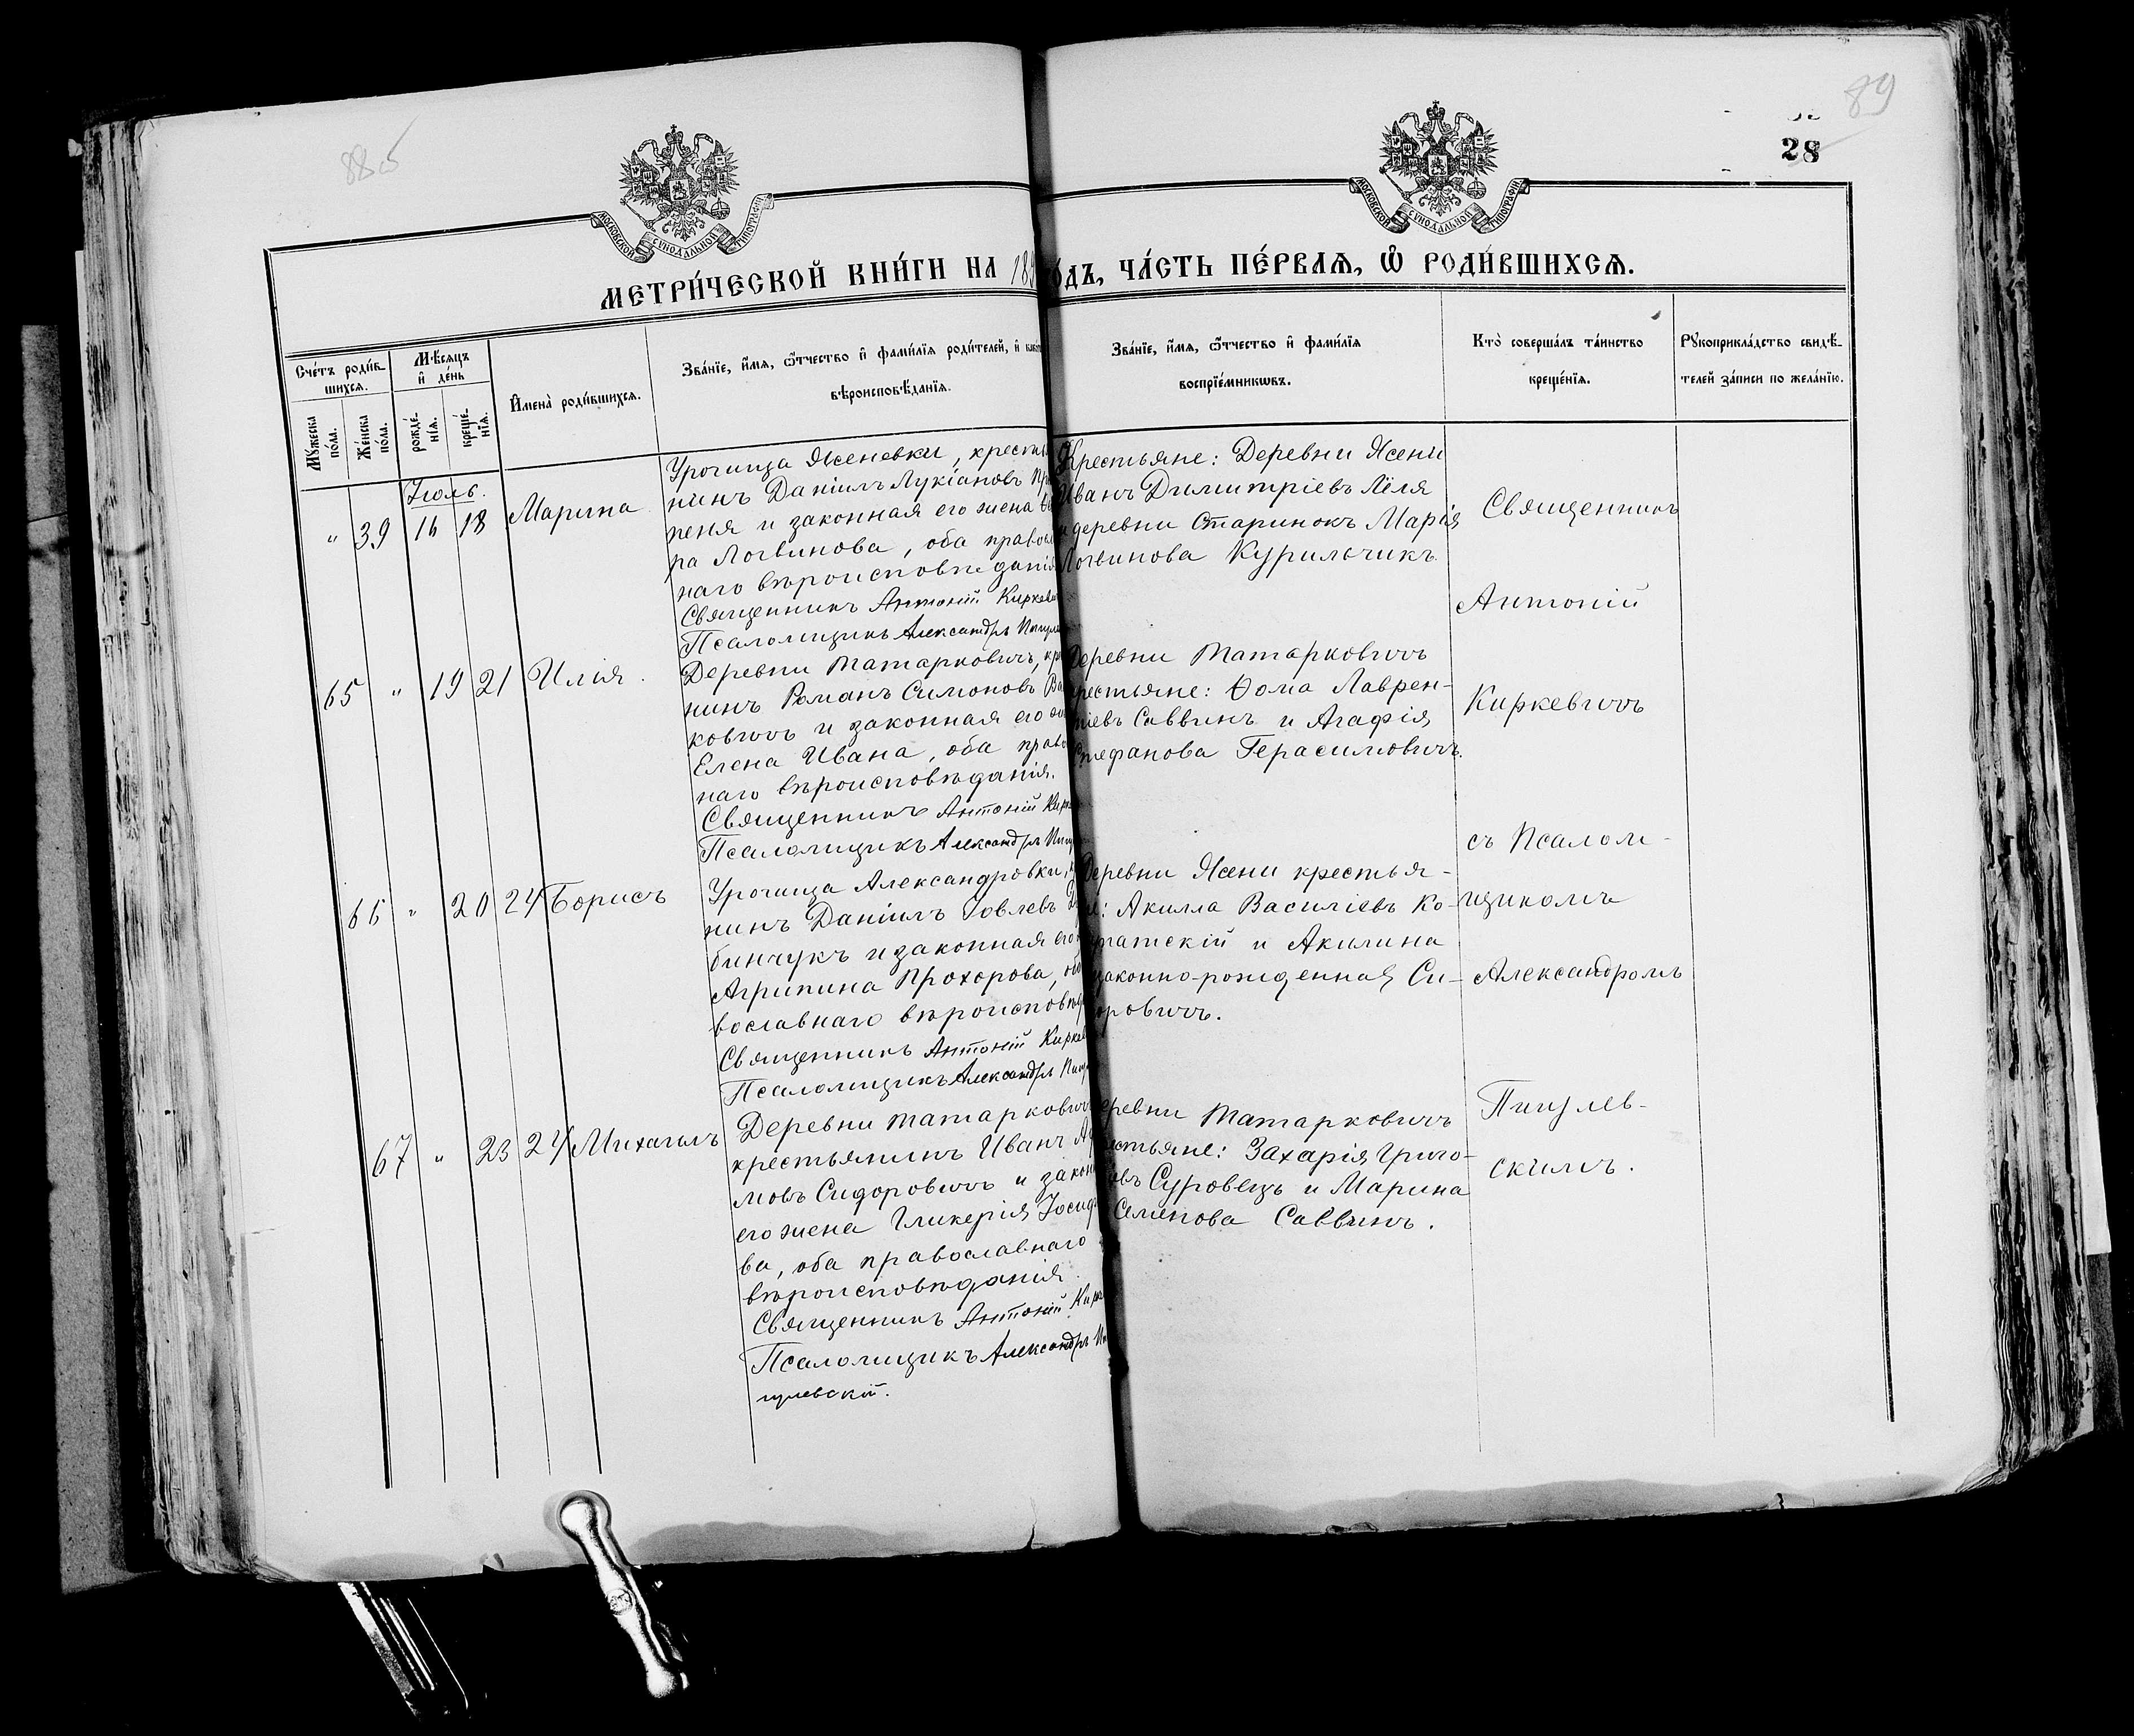 88об
89
28
МОСКОВСКОЙ СѴНОДАЛЬНОЙ ТИПОГРАФІИ
МОСКОВСКОЙ СѴНОДАЛЬНОЙ ТИПОГРАФІИ
МЕТРИ́ЧЕСКОЙ КНИ́ГИ НА 189
О́ДЪ, ЧА́СТЬ ПЕ́РВАѦ, Ѡ҆ РОДИ́ВШИХСѦ.
Сче́тъ роди́в-
шихсѧ.
Мꙋ́жеска
по́ла.
Же́нска
по́ла.
Мѣ́сѧцъ
и҆ де́нь
рожде́-
нїѧ.
креще́-
нїѧ.
И҆мена̀ роди́вшихсѧ.
Зва́нїе, и҆́мѧ, ѻ҆́тчество и҆ фами́лїѧ роди́телей, и҆
вѣроисповѣ́данїѧ.
Зва́нїе, и҆́мѧ, ѻ҆́тчество и҆ фами́лїѧ
воспрїе́мникѡвъ.
Кто̀ соверша́лъ та́инство
креще́нїѧ.
Рꙋкоприкла́дство свидѣ́-
телей за́писи по жела́нїю.
Іюль.
" 39 16 18 Марина
Урочища Ясеневки, крестья
нинъ Даніилъ Лукіановъ
пеня и законная его жена
ра Логвинова, оба правосл
наго вѣроисповѣданія
Священникъ Антоній Киркеви
Псаломщикъ Александръ Пигул
Крестьяне: Деревни Ясени
Иванъ Димитріевъ Лёля
и деревни Старинокъ Марія
Логвинова Курильчикъ
65 " 19 21 Илія.
Деревни Татарковичъ, кре
нинъ Романъ Симоновъ
ковичъ и законная его
Елена Ивана, оба право
наго вѣроисповѣданія.
Священникъ Антоній Кирк
Псаломщикъ Александръ Пигу
Деревни Татарковичъ
крестьяне: Ѳома Лаврен-
тіевъ Саввинъ и Агафія
Стефанова Герасимовичъ.
66 " 20 24 Борисъ
Урочища Александровки,
нинъ Даніилъ Іовлевъ
бинчукъ и законная его
Агрипина Прохорова, оба
вославнаго вѣроисповѣд
Священникъ Антоній Киркев
Псаломщикъ Александръ Пигу
Деревни Ясени крестья-
не: Акилла Василіевъ Ко-
ратскій и Акилина
законно-рожденная Си-
доровичъ.
67 " 23 24 Михаилъ
Деревни Татарковичъ
крестьянинъ Иванъ
мовъ Сидоровичъ и закон
его жена Гликерія Іосиф
ва, оба православнаго
вѣроисповѣданія
Священникъ Антоній Кирк
Псаломщикъ Александръ Пи
гулевскій.
деревни Татарковичъ
крестьяне: Захарія Григо-
евъ Суровецъ и Марина
Семенова Саввинъ.
Священникъ
Антоній
Киркевичъ
съ Псалом-
щикомъ
Александромъ
Пигулев-
скимъ.